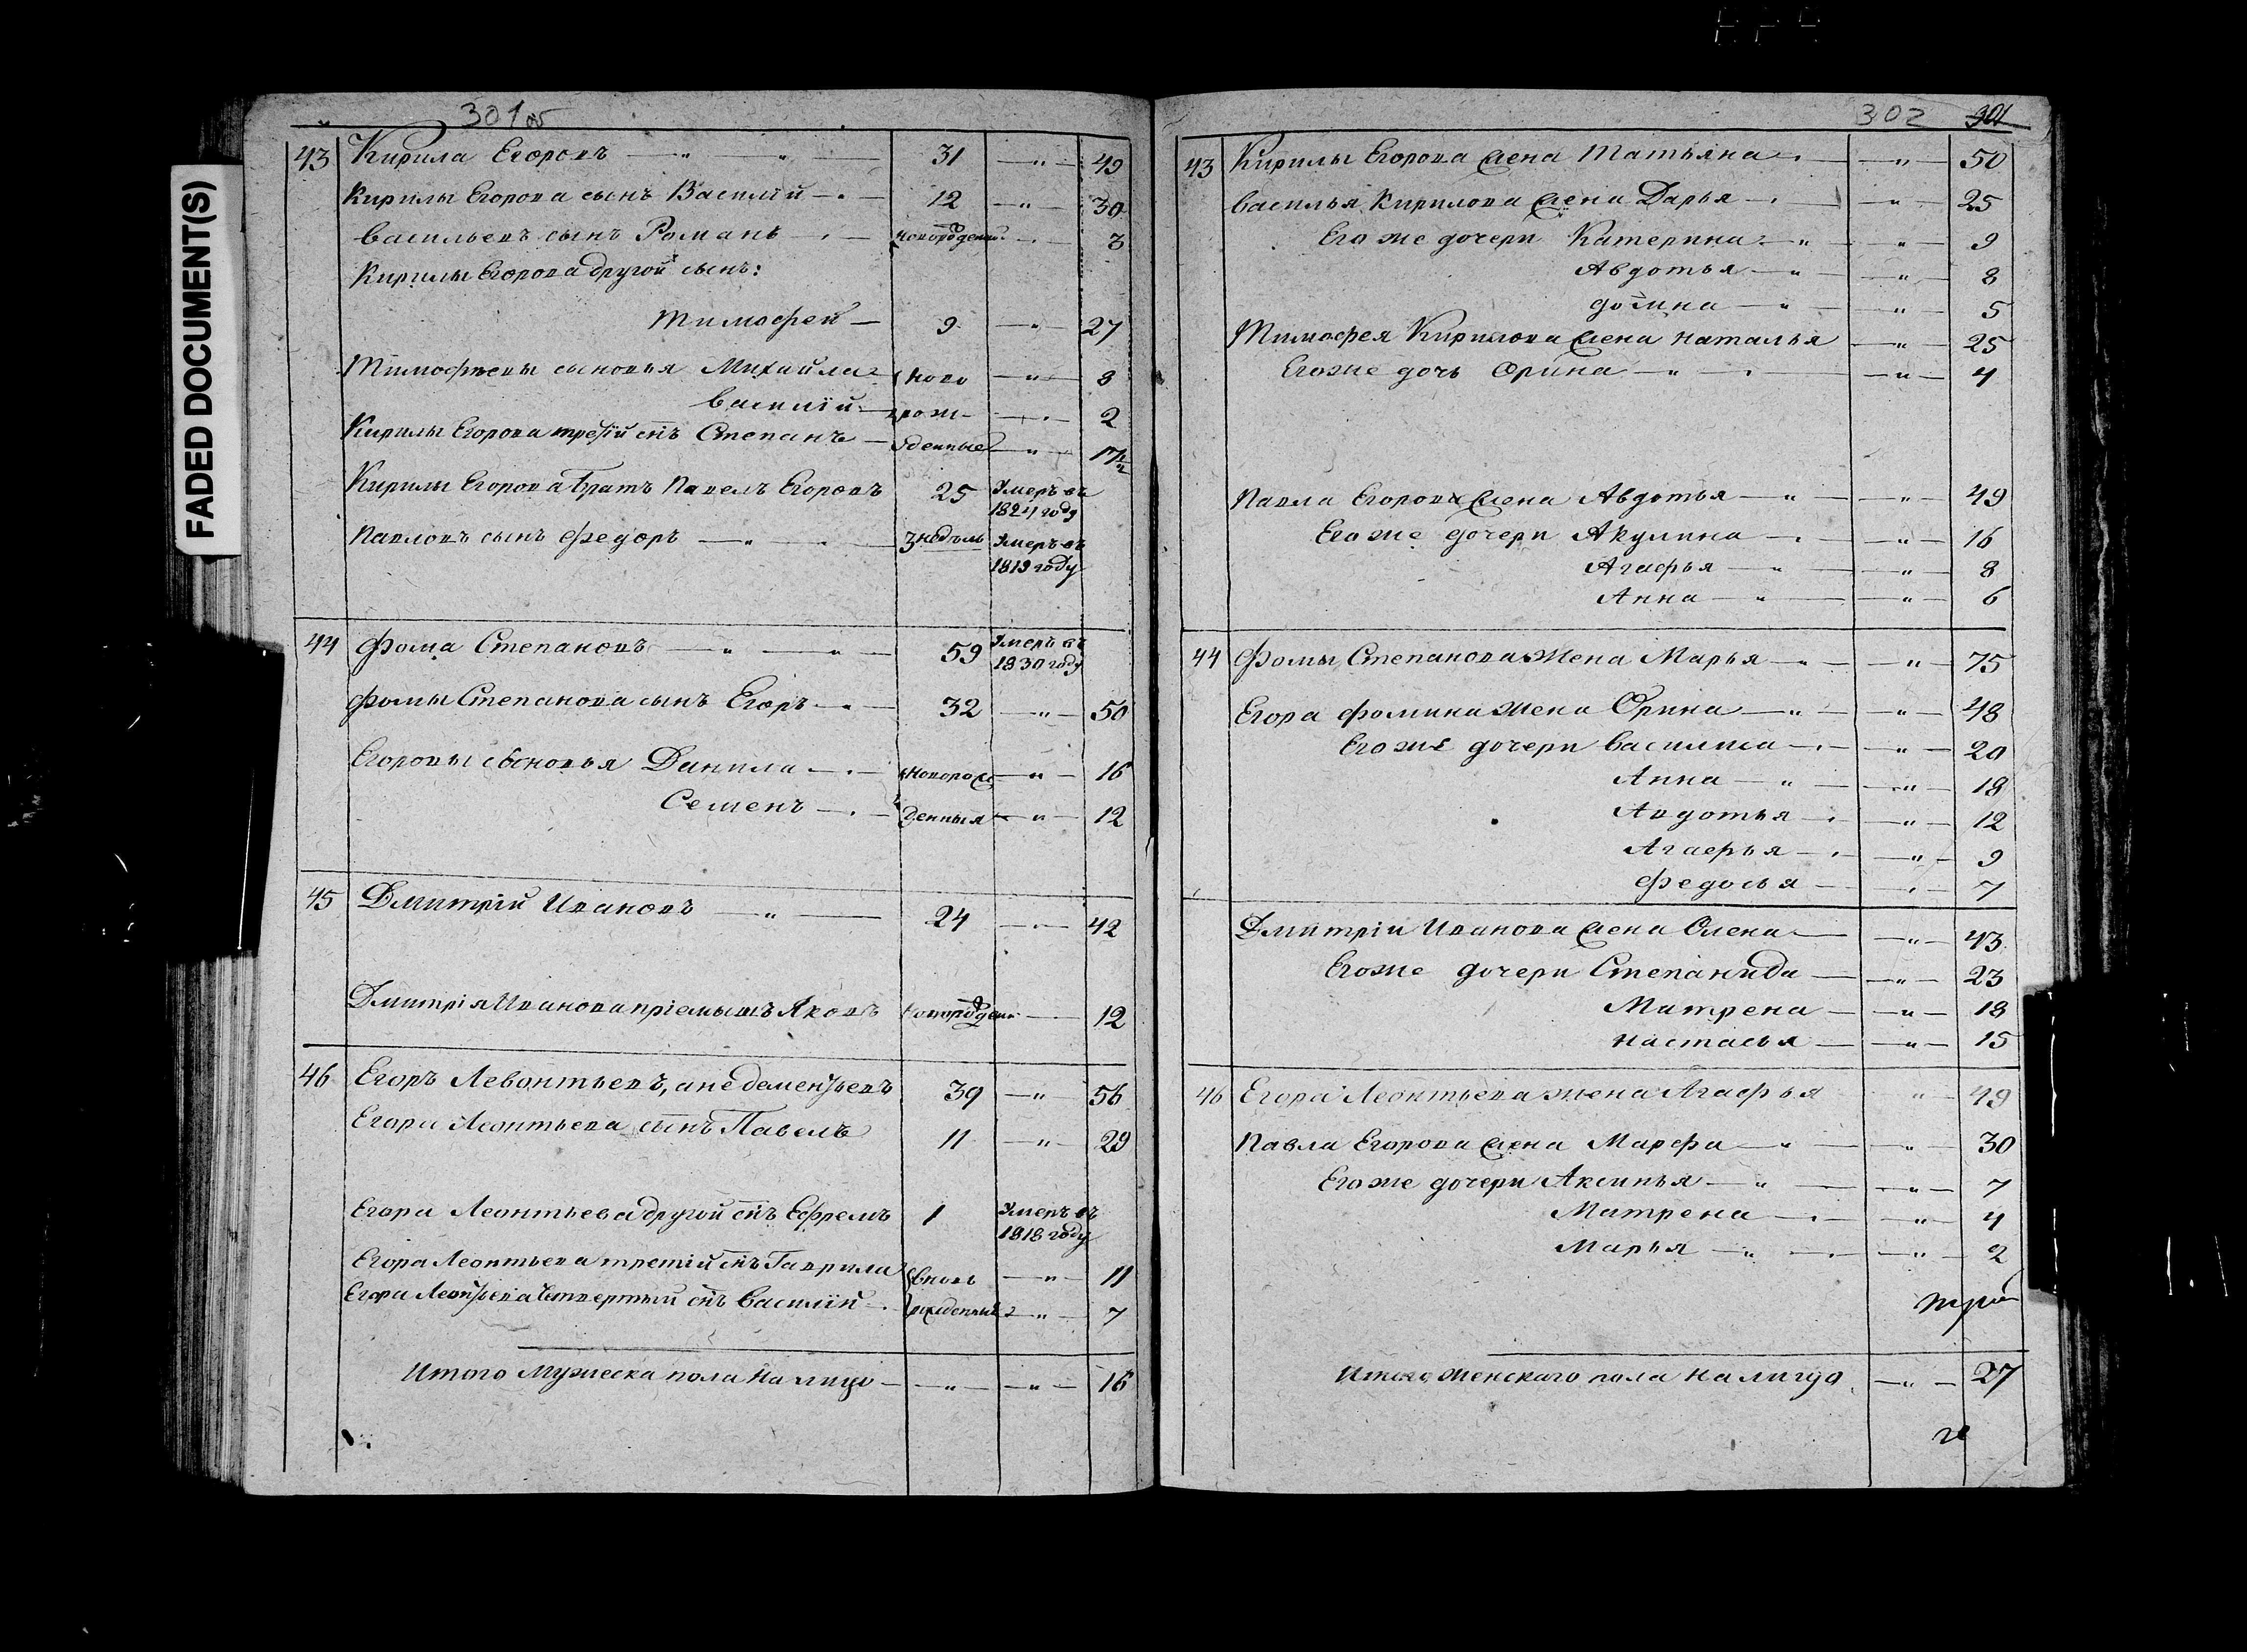 FADED DOCUMENT(S)
301об
43 Кирила Егоровъ — " — " — 31 — " — 49
Кирилы Егорова сынъ Василій — " — 12 — " — 30
Васильевъ сынъ Романъ — " — новорожденный — " — 3
Кирилы Егорова другой сынъ:
Тимофей — 9 — " — 27
Тимофѣевы сыновья Михайла — ново — " — 8
Василій — рож — " — 2
Кирилы Егорова третій сынъ Степанъ — денные — " — 17½
Кирилы Егорова братъ Павелъ Егоровъ 25 Умеръ въ
1824 году
Павловъ сынъ Федоръ — " — " — 3 недѣль Умеръ въ
1819 году
44 Фома Степановъ — " — " — 59 Умеръ въ
1830 году
Фомы Степанова сынъ Егоръ — " — 32 — " — 50
Егоровы сыновья Данила — " — новорож — " — 16
Семенъ — " — денныя — " — 12
45 Дмитрій Ивановъ — " — 24 — " — 42
Дмитрія Иванова пріемышъ Яковъ новорожден — 12
46 Егоръ Левонтьевъ, а не Дементьевъ 39 — " — 56
Егора Леонтьева сынъ Павелъ 11 — " — 29
Егора Леонтьева другой сынъ Ефремъ 1 Умеръ въ
1818 году
Егора Леонтьева третій сынъ Гаврила вновь — " — 11
Егора Леонтьева четвертый сынъ Василій — рожденные — " — 7
Итого Мужеска пола на лицо — " — " — 16
302 301
43 Кирилы Егорова жена Татьяна — " — 50
Василья Кирилова жена Дарья — " — 25
Его же дочери Катерина — " — " — 9
Авдотья — " — " — 8
Домна — " — " — 5
Тимофея Кирилова жена Наталья — " — 25
Его же дочь Орина — " — " — 4
Павла Егорова жена Авдотья — " — " — 49
Его же дочери Акулина — " — " — 16
Агафья — " — " — 8
Анна — " — " — 6
44 Фомы Степанова жена Марья — " — " — 75
Егора Фомина жена Орина — " — " — 48
Его же дочери Василиса — " — " — 20
Анна — " — " — 18
Авдотья — " — " — 12
Агафья — " — " — 9
Федосья — " — 7
Дмитріи Иванова жена Олена — " — 43
Его же дочери Степанида — " — 23
Матрена — " — 18
Настасья — " — 15
46 Егора Леонтьева жена Агафья " — 49
Павла Егорова жена Марфа — " — " — 30
Его же дочери Аксинья — " — " — 7
Матрена — " — " — 4
Марья — " — " — 2
Итого женскаго пола на лицо — " — 27